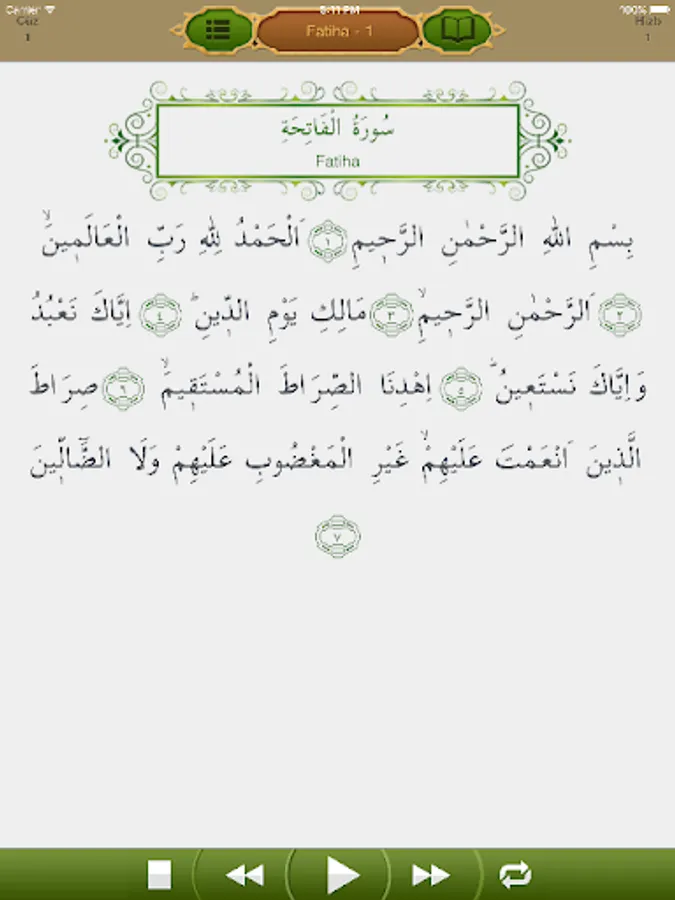 Carrier PM 100%
Cüz Fatiha - 1 Hizb
1 1
سُورَةُ الْفَاتِحَةِ
Fatiha
بِسْمِ اللهِ الرَّحْمٰنِ الرَّحٖيمِ ١ اَلْحَمْدُ لِلهِ رَبِّ الْعَالَمٖينَۙ
٢ اَلرَّحْمٰنِ الرَّحٖيمِۙ ٣ مَالِكِ يَوْمِ الدّٖينِؕ ٤ اِيَّاكَ نَعْبُدُ
وَاِيَّاكَ نَسْتَعٖينُؕ ٤ اِهْدِنَا الصِّرَاطَ الْمُسْتَقٖيمَۙ ٦ صِرَاطَ
الَّذٖينَ اَنْعَمْتَ عَلَيْهِمْۙ غَيْرِ الْمَغْضُوبِ عَلَيْهِمْ وَلَا الضَّٓالّٖينَ
٧